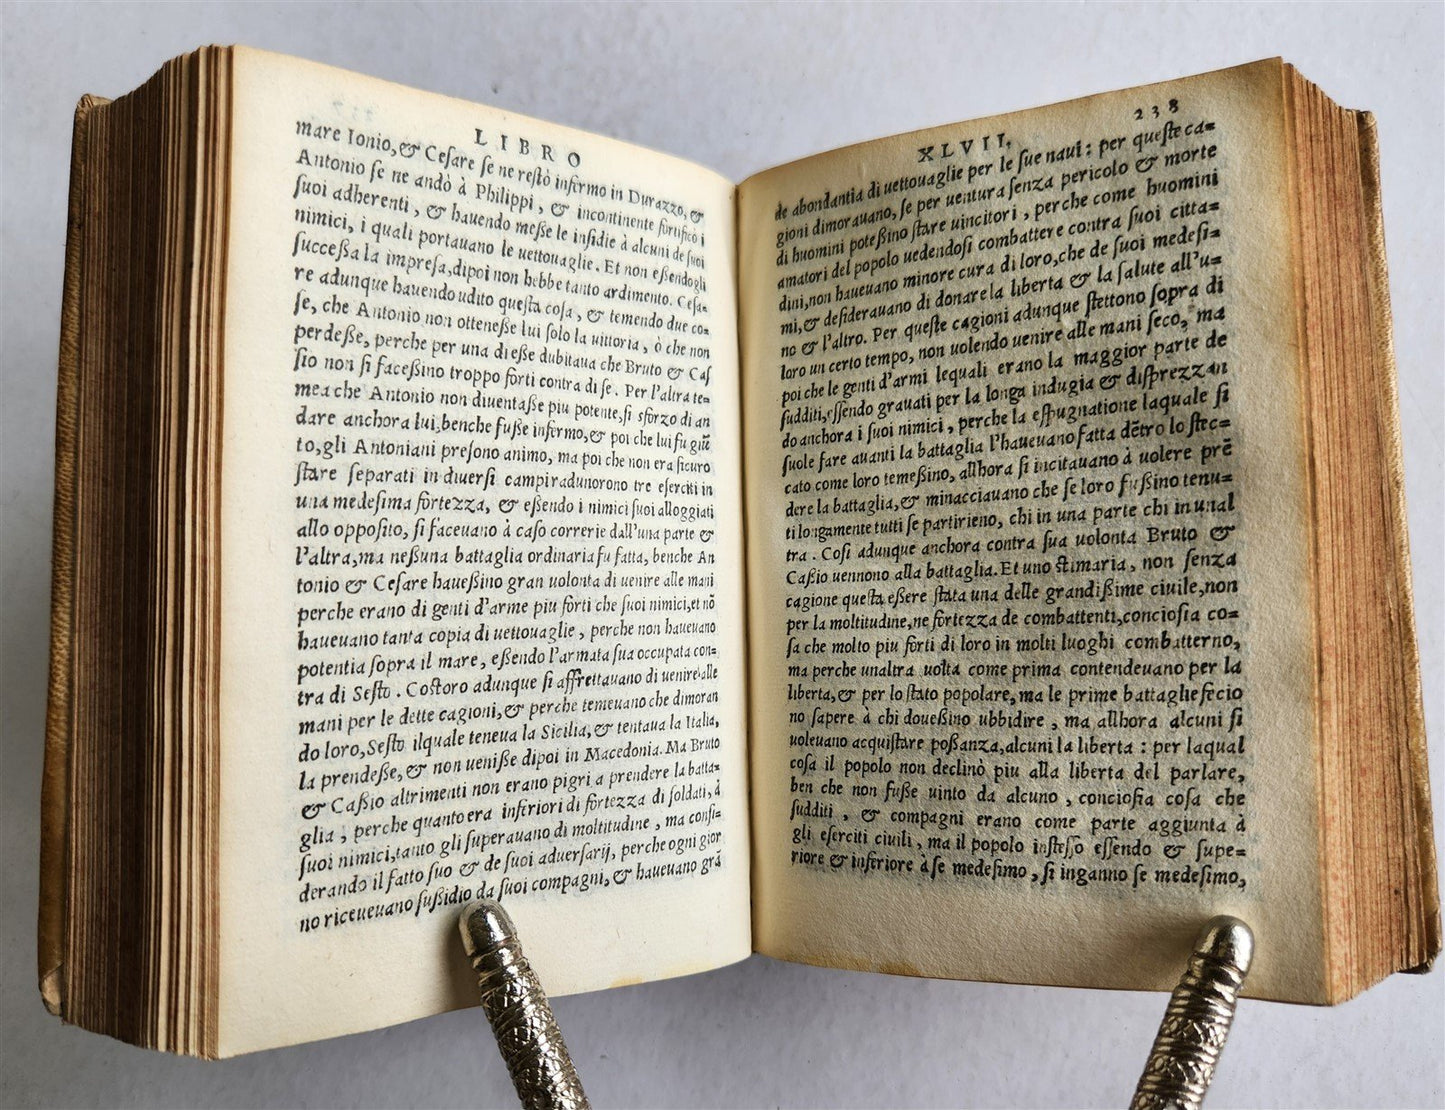 LIBRO
mare Ionio, & Cesare se ne restò infermo in Durazzo, &
Antonio se ne andò à Philippi, & incontinente fortificò i
suoi adherenti, & hauendo meſſe le insidie à alcuni de suoi
nimici, i quali portauano le uettouaglie. Et non eſſendogli
succeſſa la impresa, dipoi non hebbe tanto ardimento. Cesa-
re adunque hauendo udito questa cosa, & temendo due co-
se, che Antonio non otteneſſe lui solo la uittoria, ò che non
perdeſſe, perche per una di eſſe dubitaua che Bruto & Caſ
sio non si faceſſino troppo forti contra di se. Per l'altra te-
mea che Antonio non diuentaſſe piu potente, si sforzo di an
dare anchora lui, benche fuſſe infermo, & poi che lui fu giũ
to, gli Antoniani presono animo, ma poi che non era sicuro
stare separati in diuersi campi radunorono tre eserciti in
una medesima fortezza, & eſſendo i nimici suoi alloggiati
allo opposito, si faceuano à caso correrie dall'una parte &
l'altra, ma neſſuna battaglia ordinaria fu fatta, benche An
tonio & Cesare haueſſino gran uolonta di uenire alle mani
perche erano di genti d'arme piu forti che suoi nimici, et nõ
haueuano tanta copia di uettouaglie, perche non haueuano
potentia sopra il mare, eſſendo l'armata sua occupata con-
tra di Sesto. Costoro adunque si affrettauano di uenire alle
mani per le dette cagioni, & perche temeuano che dimoran
do loro, Sesto ilquale teneua la Sicilia, & tentaua la Italia,
la prendeſſe, & non ueniſſe dipoi in Macedonia. Ma Bruto
& Caſſio altrimenti non erano pigri a prendere la batta-
glia, perche quanto era inferiori di fortezza di soldati, à
suoi nimici, tanto gli superauano di moltitudine, ma consi-
derando il fatto suo & de suoi aduersarij, perche ogni gior
no riceueuano suſſidio da suoi compagni, & haueuano grã
XLVII. 238
de abondantia di uettouaglie per le sue naui: per queste ca-
gioni dimorauano, se per uentura senza pericolo & morte
di huomini poteſſino stare uincitori, perche come huomini
amatori del popolo uedendosi combattere contra suoi citta-
dini, non haueuano minore cura di loro, che de suoi medesi-
mi, & desiderauano di donare la liberta & la salute all'u-
no & l'altro. Per queste cagioni adunque stettono sopra di
loro un certo tempo, non uolendo uenire alle mani seco, ma
poi che le genti d'armi lequali erano la maggior parte de
sudditi, eſſendo grauati per la longa indugia & disprezzan
do anchora i suoi nimici, perche la espugnatione laquale si
suole fare auanti la battaglia l'haueuano fatta dẽtro lo stec-
cato come loro temeſſino, allhora si incitauano à uolere prẽ
dere la battaglia, & minacciauano che se loro fuſſino tenu-
ti longamente tutti se partirieno, chi in una parte chi in unal
tra. Cosi adunque anchora contra sua uolonta Bruto &
Caſſio uennono alla battaglia. Et uno stimaria, non senza
cagione questa eſſere stata una delle grandiſſime ciuile, non
per la moltitudine, ne fortezza de combattenti, conciosia co-
sa che molto piu forti di loro in molti luoghi combatterno,
ma perche unaltra uolta come prima contendeuano per la
liberta, & per lo stato popolare, ma le prime battaglie fecio
no sapere à chi doueſſino ubbidire, ma allhora alcuni si
uoleuano acquistare poſſanza, alcuni la liberta: per laqual
cosa il popolo non declinò piu alla liberta del parlare,
ben che non fuſſe uinto da alcuno, conciosia cosa che
sudditi, & compagni erano come parte aggiunta à
gli eserciti ciuili, ma il popolo instesso eſſendo & supe-
riore & inferiore à se medesimo, si inganno se medesimo,